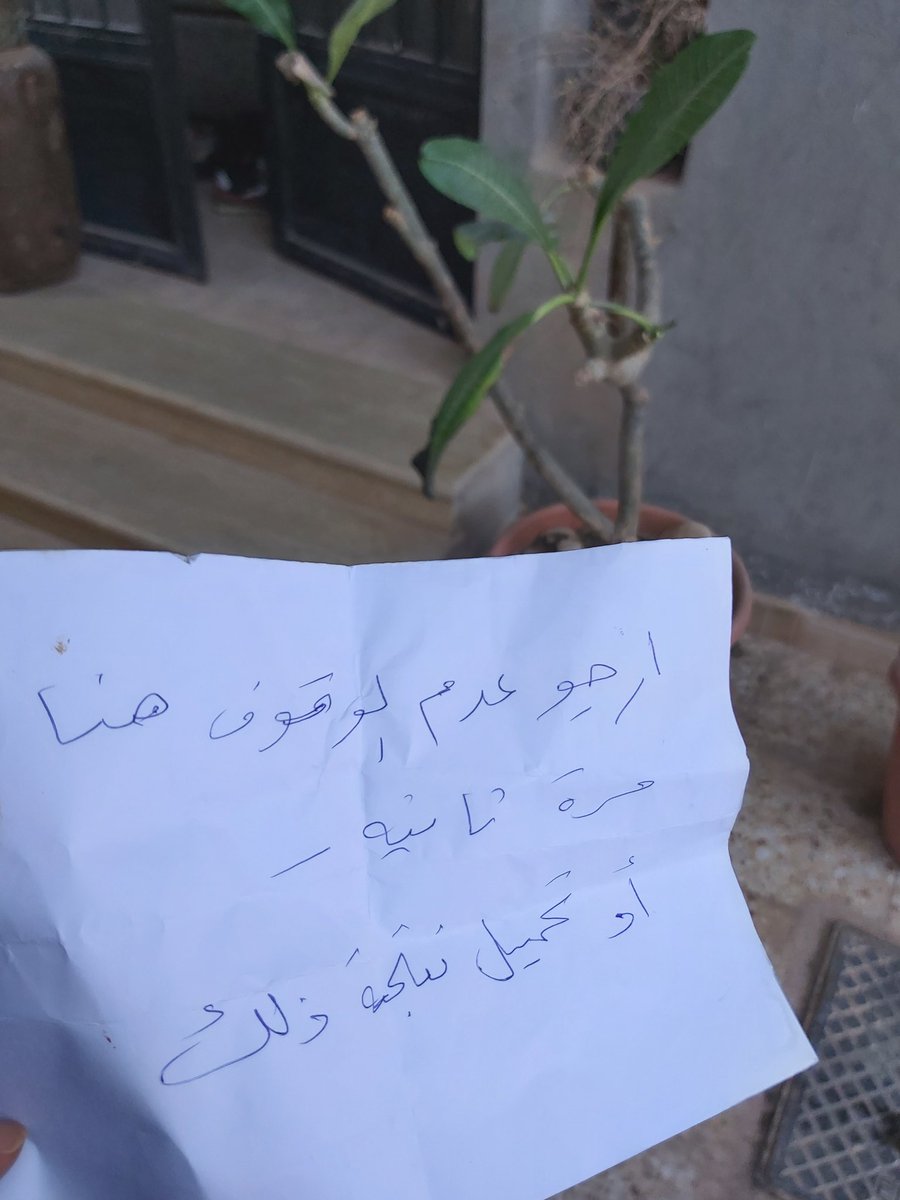 ارجو عدم الوقوف هنا
مرة ثانيه -
أو تحميل نتيجة ذلك